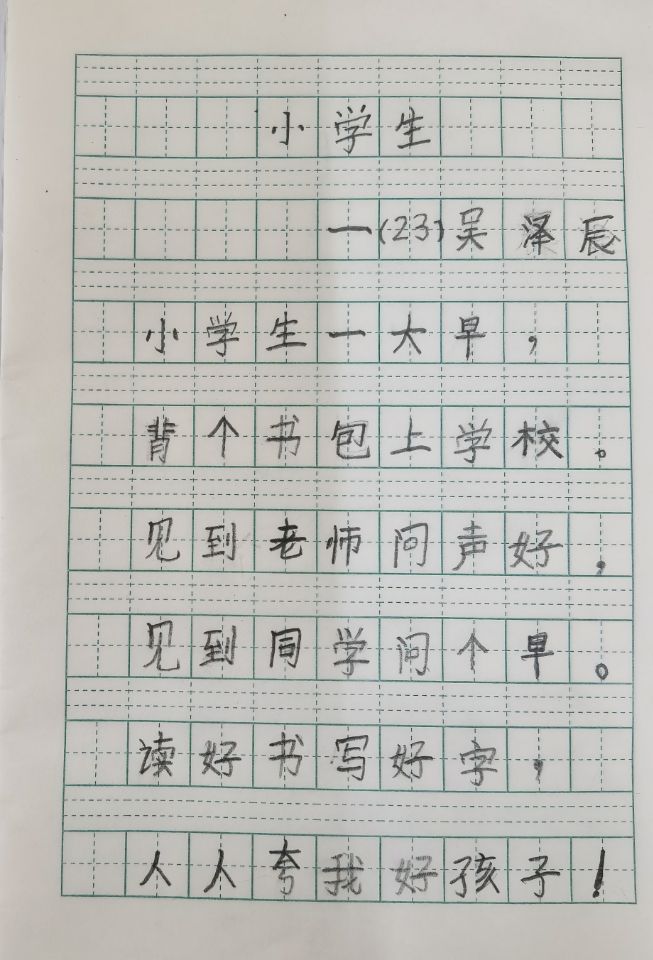 小学生
一(23)吴泽辰
小学生一大早,
背个书包上学校。
见到老师问声好,
见到同学问个早。
读好书写好字,
人人夸我好孩子!